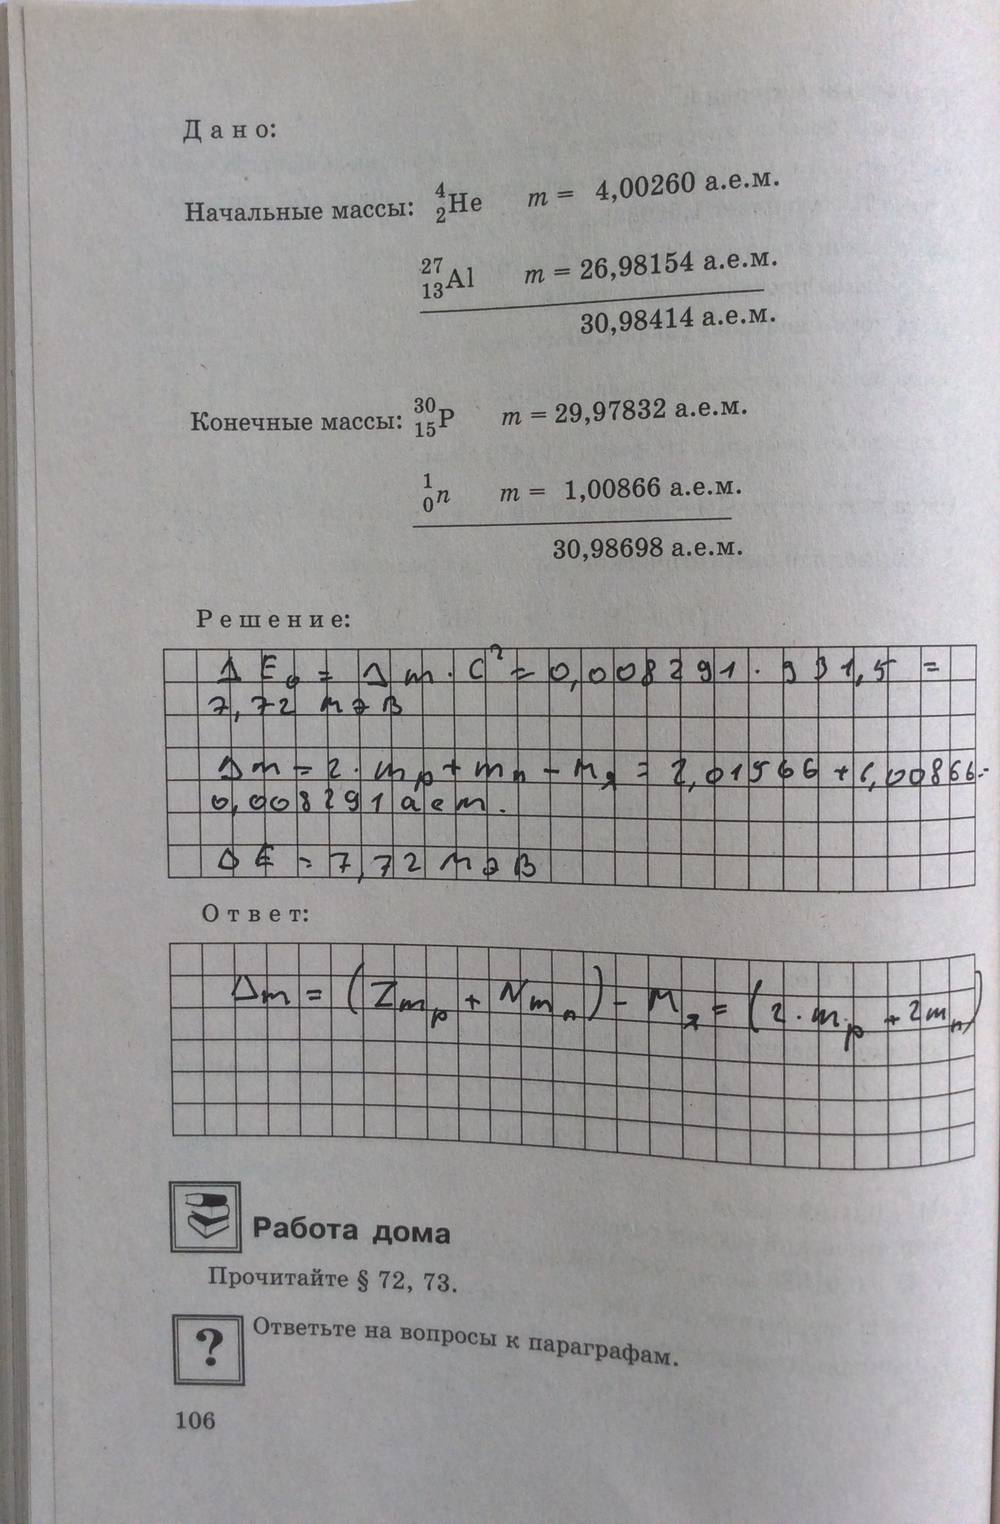 Дано:
Начальные массы: ⁴₂He m = 4,00260 а.е.м.
²⁷₁₃Al m = 26,98154 а.е.м.
30,98414 а.е.м.
Конечные массы: ³⁰₁₅P m = 29,97832 а.е.м.
¹₀n m = 1,00866 а.е.м.
30,98698 а.е.м.
Решение:
Δ E₀ = Δm · c² = 0,008291 · 931,5 =
7,72 МэВ
Δm = 2 · mₚ + mₙ - Mя = 2,01566 + 1,00866-
0,008291 а е м.
ΔE = 7,72 МэВ
Ответ:
Δm = (Zmₚ + Nmₙ) - Mя = (2 · mₚ + 2mₙ)
Работа дома
Прочитайте § 72, 73.
? Ответьте на вопросы к параграфам.
106